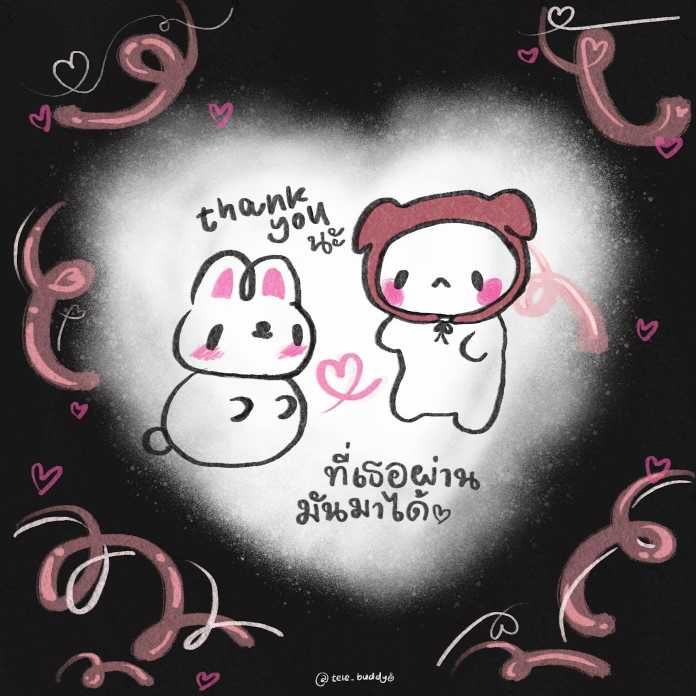 thank
you
นะ
ที่เธอผ่าน
มันมาได้♡
@tele_buddy